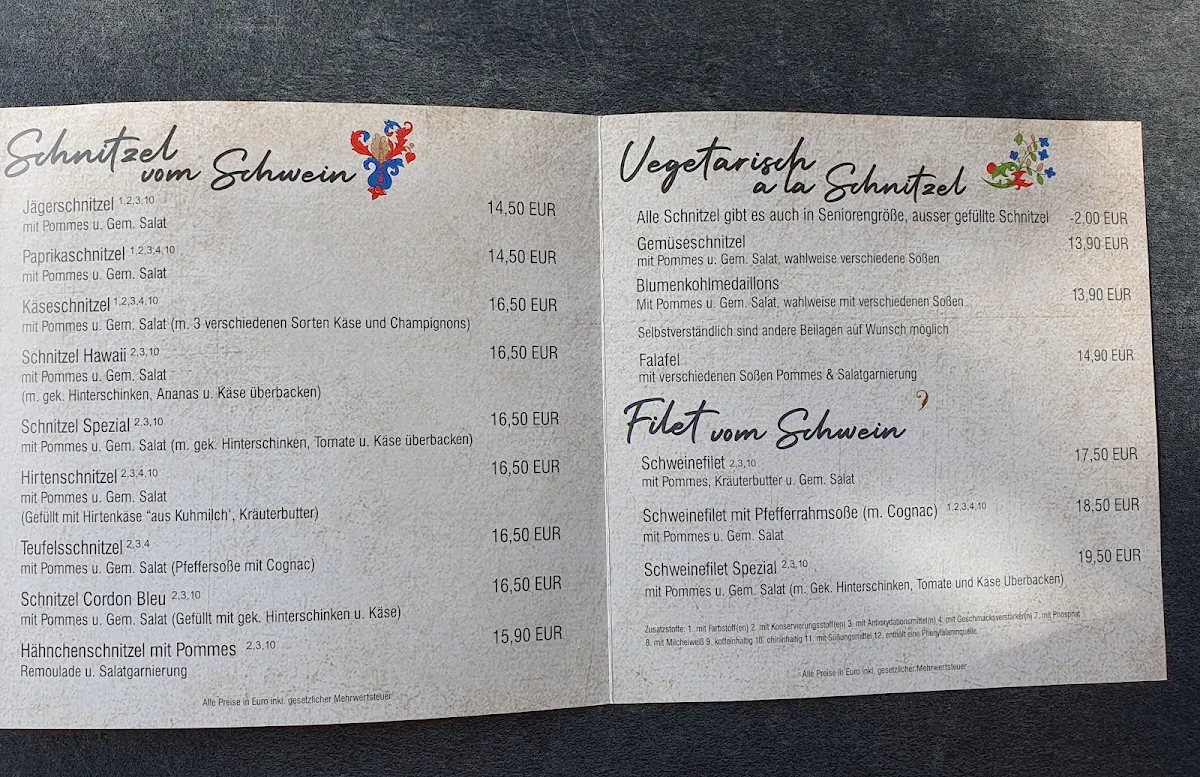 Schnitzel
vom Schwein
Jägerschnitzel 1,2,3,10
mit Pommes u. Gem. Salat
14,50 EUR
Paprikaschnitzel 1,2,3,4,10
mit Pommes u. Gem. Salat
14,50 EUR
Käseschnitzel 1,2,3,4,10
mit Pommes u. Gem. Salat (m. 3 verschiedenen Sorten Käse und Champignons)
16,50 EUR
Schnitzel Hawaii 2,3,10
mit Pommes u. Gem. Salat
(m. gek. Hinterschinken, Ananas u. Käse überbacken)
16,50 EUR
Schnitzel Spezial 2,3,10
mit Pommes u. Gem. Salat (m. gek. Hinterschinken, Tomate u. Käse überbacken)
16,50 EUR
Hirtenschnitzel 2,3,4,10
mit Pommes u. Gem. Salat
(Gefüllt mit Hirtenkäse "aus Kuhmilch", Kräuterbutter)
16,50 EUR
Teufelsschnitzel 2,3,4
mit Pommes u. Gem. Salat (Pfeffersoße mit Cognac)
16,50 EUR
Schnitzel Cordon Bleu 2,3,10
mit Pommes u. Gem. Salat (Gefüllt mit gek. Hinterschinken u. Käse)
16,50 EUR
Hähnchenschnitzel mit Pommes 2,3,10
Remoulade u. Salatgarnierung
15,90 EUR
Alle Preise in Euro inkl. gesetzlicher Mehrwertsteuer
Vegetarisch
a la Schnitzel
Alle Schnitzel gibt es auch in Seniorengröße, ausser gefüllte Schnitzel -2,00 EUR
Gemüseschnitzel 13,90 EUR
mit Pommes u. Gem. Salat, wahlweise verschiedene Soßen
Blumenkohlmedaillons
Mit Pommes u. Gem. Salat, wahlweise mit verschiedenen Soßen
13,90 EUR
Selbstverständlich sind andere Beilagen auf Wunsch möglich
Falafel 14,90 EUR
mit verschiedenen Soßen Pommes & Salatgarnierung
Filet vom Schwein
Schweinefilet 2,3,10
mit Pommes, Kräuterbutter u. Gem. Salat
17,50 EUR
Schweinefilet mit Pfefferrahmsoße (m. Cognac) 1,2,3,4,10
mit Pommes u. Gem. Salat
18,50 EUR
Schweinefilet Spezial 2,3,10
mit Pommes u. Gem. Salat (m. Gek. Hinterschinken, Tomate und Käse Überbacken)
19,50 EUR
Zusatzstoffe: 1. mit Farbstoff(en) 2. mit Konservierungsstoff(en) 3. mit Antioxydationsmittel(n) 4. mit Geschmacksverstärker(n) 7. mit Phosphat
8. mit Milcheiweiß 9. koffeinhaltig 10. chininhaltig 11. mit Süßungsmittel 12. enthält eine Phenylalaninquelle.
Alle Preise in Euro inkl. gesetzlicher Mehrwertsteuer